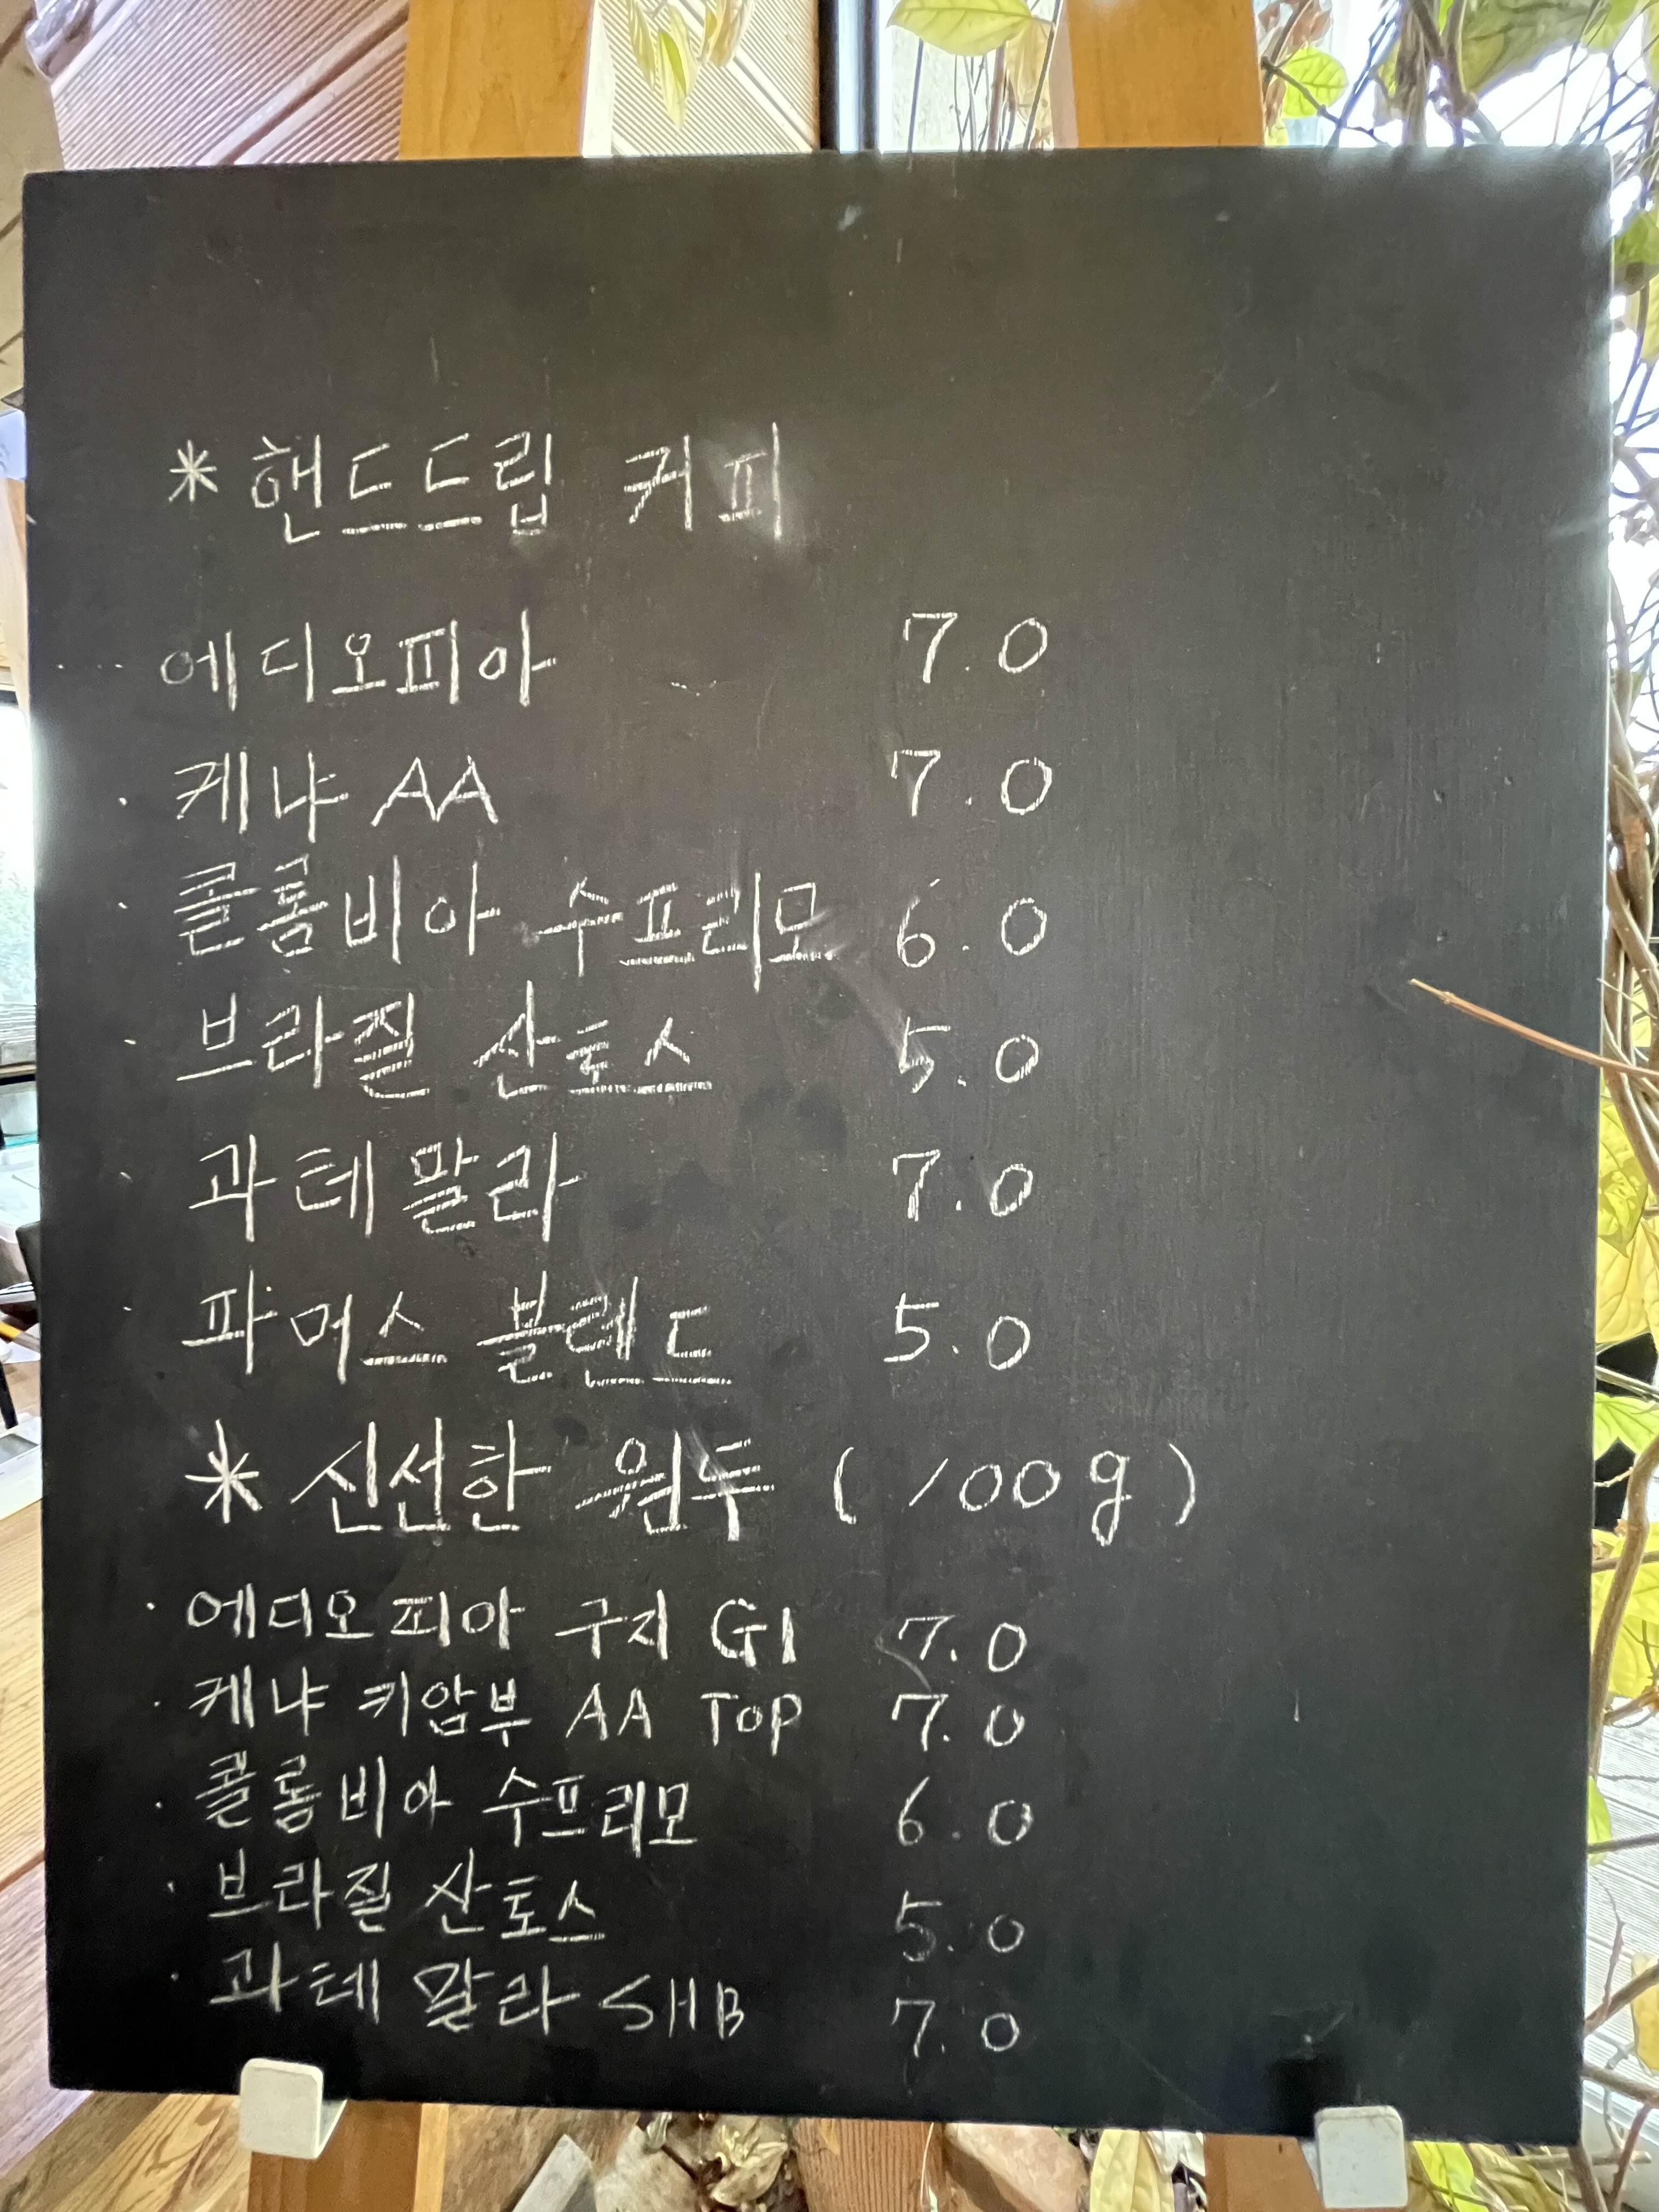 * 핸드드립 커피
에디오피아 7.0
· 케냐 AA 7.0
· 콜롬비아 수프리모 6.0
· 브라질 산토스 5.0
· 과테말라 7.0
· 파머스 블렌드 5.0
* 신선한 원두 (100g)
· 에디오피아 구지 G1 7.0
· 케냐 키암부 AA TOP 7.0
· 콜롬비아 수프리모 6.0
· 브라질 산토스 5.0
· 과테말라 SHB 7.0